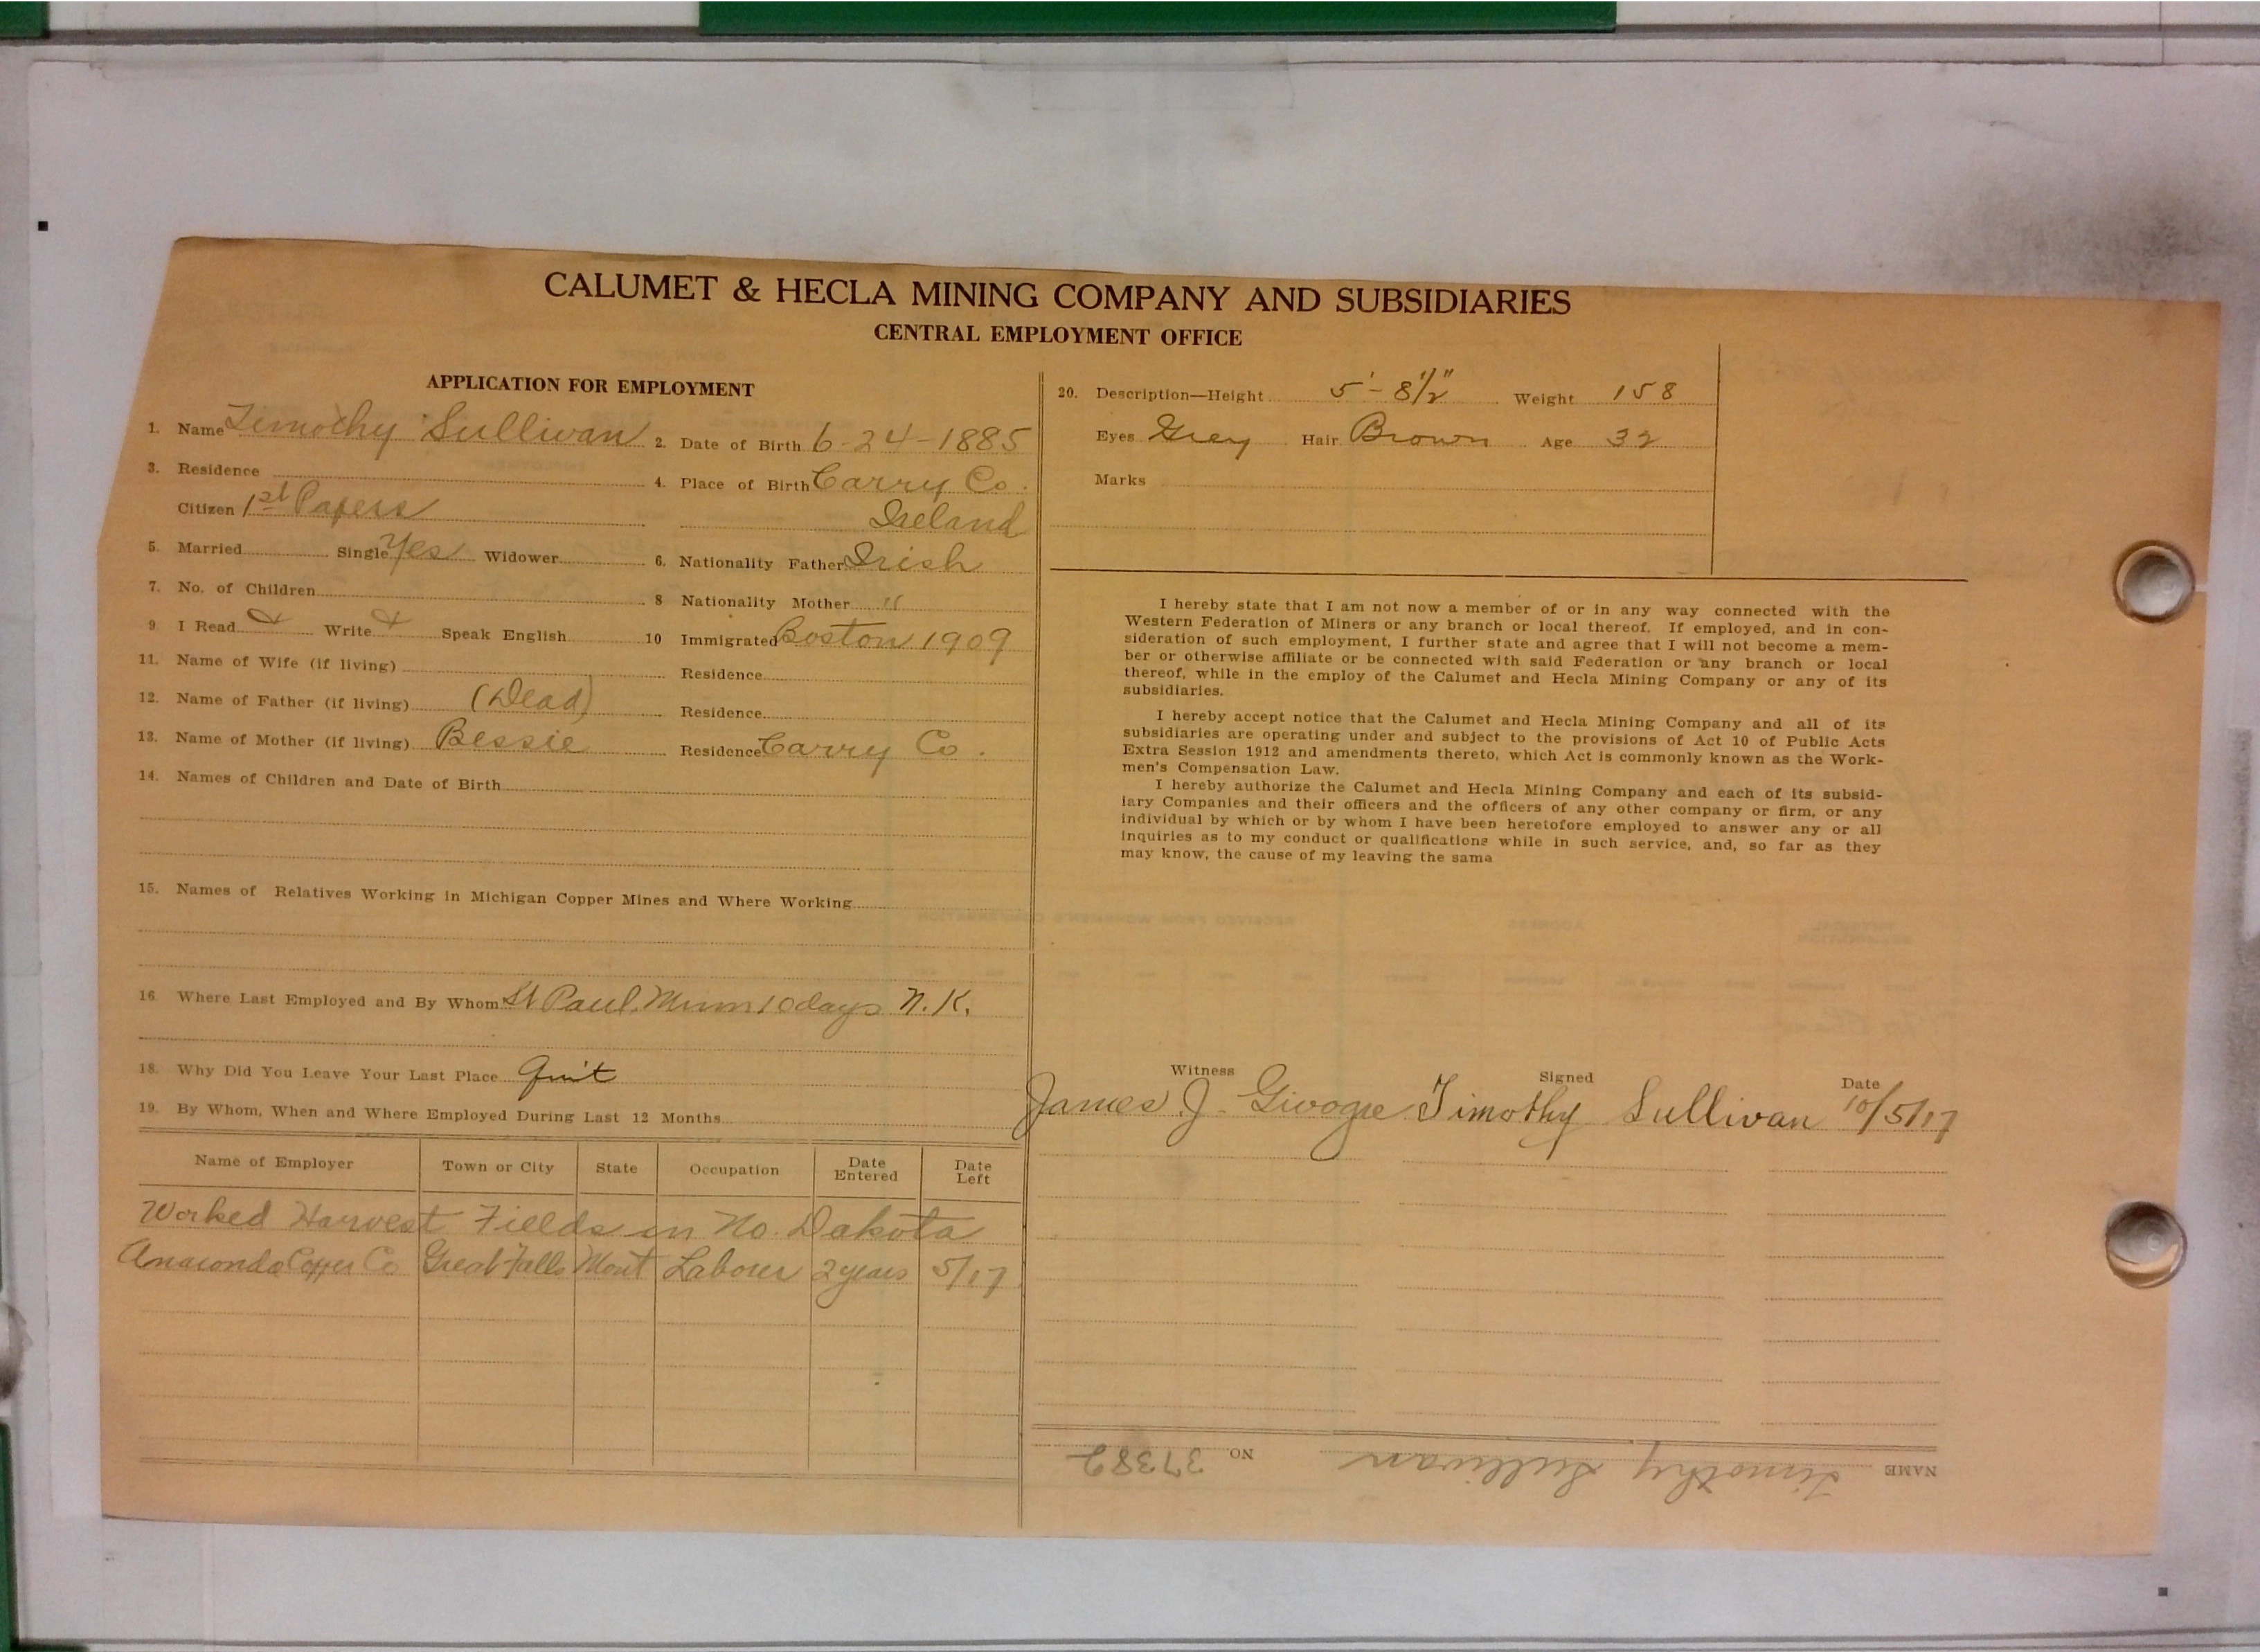 CALUMET & HECLA MINING COMPANY AND SUBSIDIARIES
CENTRAL EMPLOYMENT OFFICE
APPLICATION FOR EMPLOYMENT
1. Name Timothy Sullivan 2. Date of Birth 6-24-1885
3. Residence 4. Place of Birth Carry Co.
Citizen 1st Papers Ireland
5. Married Single Yes Widower 6. Nationality Father Irish
7. No. of Children 8 Nationality Mother "
9. I Read Write Speak English 10 Immigrated Boston 1909
11. Name of Wife (if living) Residence
12. Name of Father (if living) (Dead) Residence
13. Name of Mother (if living) Bessie Residence Carry Co.
14. Names of Children and Date of Birth
15. Names of Relatives Working in Michigan Copper Mines and Where Working
16. Where Last Employed and By Whom St Paul, Minn 10 days N.K.
18. Why Did You Leave Your Last Place Quit
19. By Whom, When and Where Employed During Last 12 Months
Name of Employer Town or City State Occupation Date Entered Date Left
Worked Harvest Fields in No. Dakota
Anaconda Copper Co Great Falls Mont Laborer 2 years 5/17
20. Description—Height 5'-8½" Weight 158
Eyes Grey Hair Brown Age 32
Marks
I hereby state that I am not now a member of or in any way connected with the
Western Federation of Miners or any branch or local thereof. If employed, and in con-
sideration of such employment, I further state and agree that I will not become a mem-
ber or otherwise affiliate or be connected with said Federation or any branch or local
thereof, while in the employ of the Calumet and Hecla Mining Company or any of its
subsidiaries.
I hereby accept notice that the Calumet and Hecla Mining Company and all of its
subsidiaries are operating under and subject to the provisions of Act 10 of Public Acts
Extra Session 1912 and amendments thereto, which Act is commonly known as the Work-
men's Compensation Law.
I hereby authorize the Calumet and Hecla Mining Company and each of its subsid-
iary Companies and their officers and the officers of any other company or firm, or any
individual by which or by whom I have been heretofore employed to answer any or all
inquiries as to my conduct or qualifications while in such service, and, so far as they
may know, the cause of my leaving the same
Witness Signed Date
James J. Timothy Sullivan 10/5/17
NAME Timothy Sullivan NO 37382